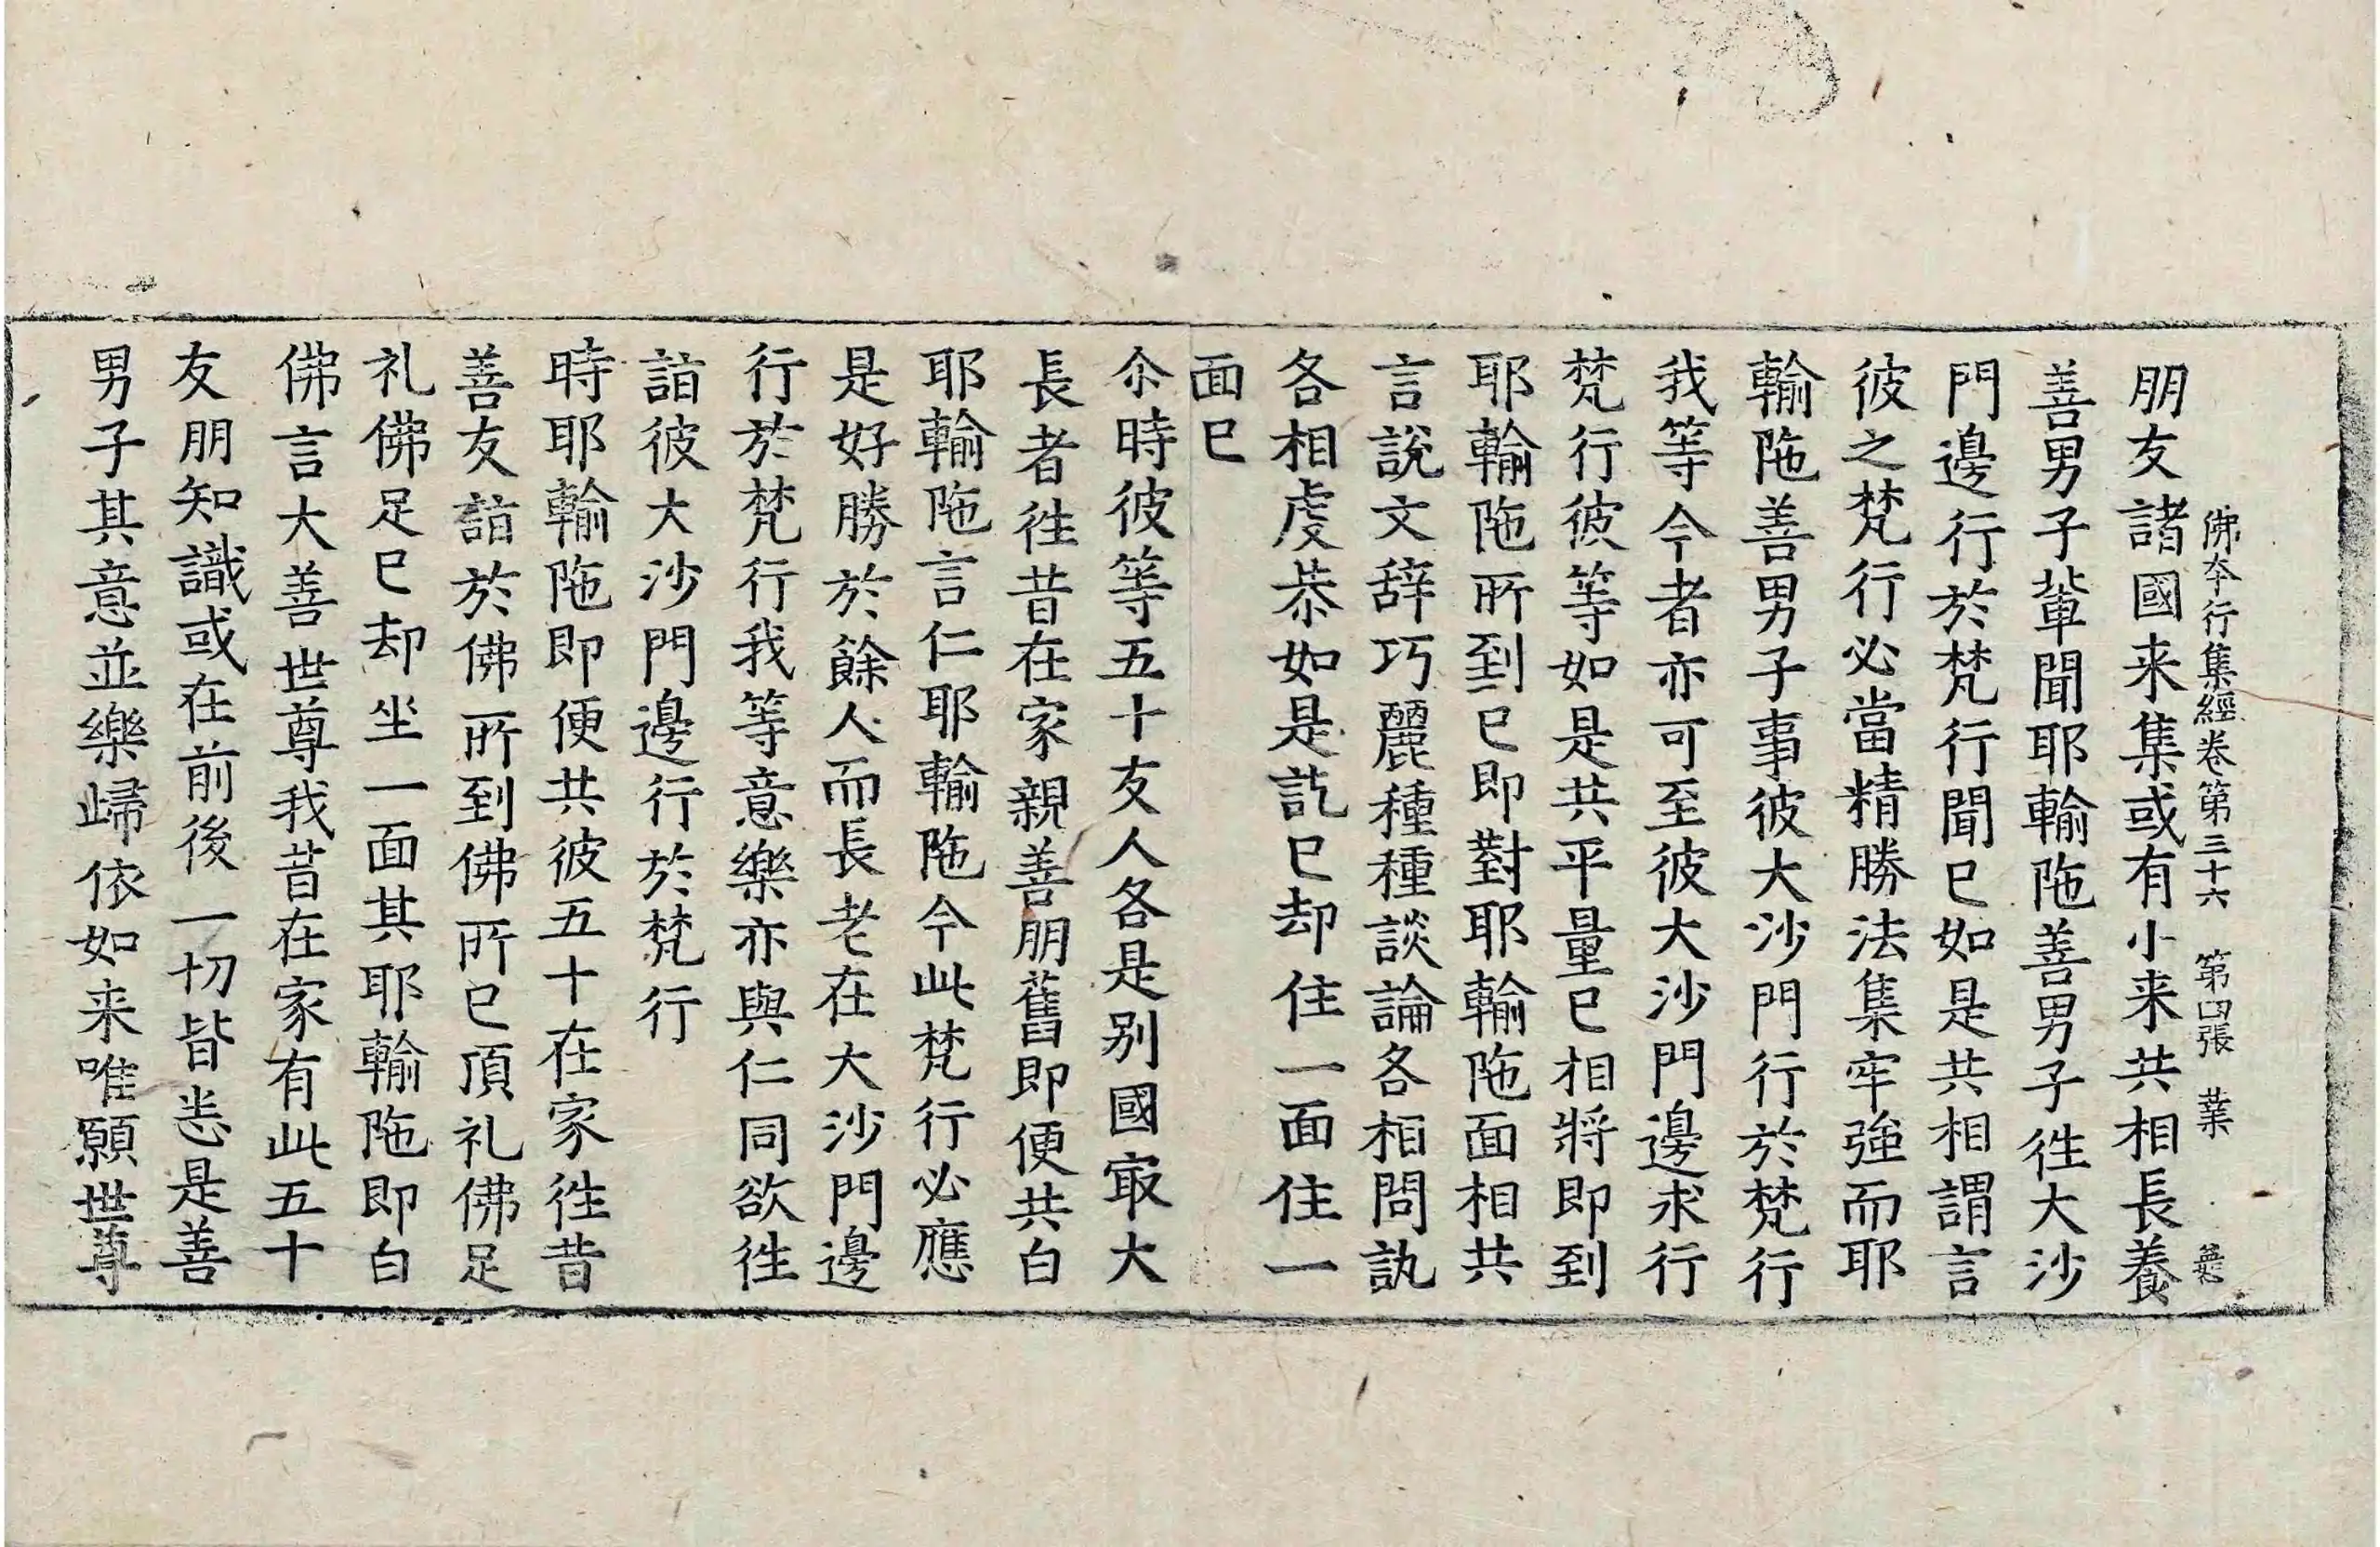 佛夲行集經卷第三十六 第四張 業
朋友諸國来集或有小来共相長養
善男子軰聞耶輸陁善男子徃大沙
門邊行於梵行聞已如是共相謂言
彼之梵行必當精勝法集牢強而耶
輸陁善男子事彼大沙門行於梵行
我等今者亦可至彼大沙門邊求行
梵行彼等如是共平量已相將即到
耶輸陁所到已即對耶輸陁面相共
言說文辝巧麗種種談論各相問訊
各相虔恭如是訖已却住一面住一
面已
尒時彼等五十友人各是別國㝡大
長者徃昔在家親善朋舊即便共白
耶輸陁言仁耶輸陁今此梵行必應
是好勝於餘人而長老在大沙門邊
行於梵行我等意樂亦與仁同欲徃
詣彼大沙門邊行於梵行
時耶輸陁即便共彼五十在家徃昔
善友詣於佛所到佛所已頂礼佛足
礼佛足已却坐一面其耶輸陁即白
佛言大善世尊我昔在家有此五十
友朋知識或在前後一切皆悉是善
男子其意並樂歸依如来唯願世尊